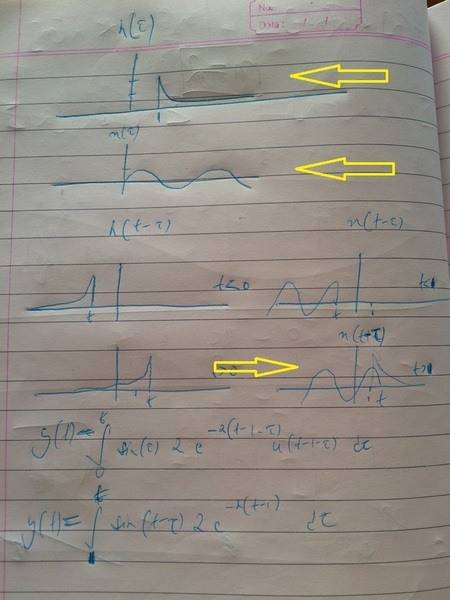 h(τ)
No.
Date: / /
1
x(τ)
h(t-τ) x(t-τ)
t<0
t
x(t-τ)
t
y(t)= ∫₀ᵗ sin(τ) 2 e^{-2(t-1-τ)} u(t-1-τ) dτ
y(t)= ∫₁ᵗ sin(t-τ) 2 e^{-2(t-1)} dτ